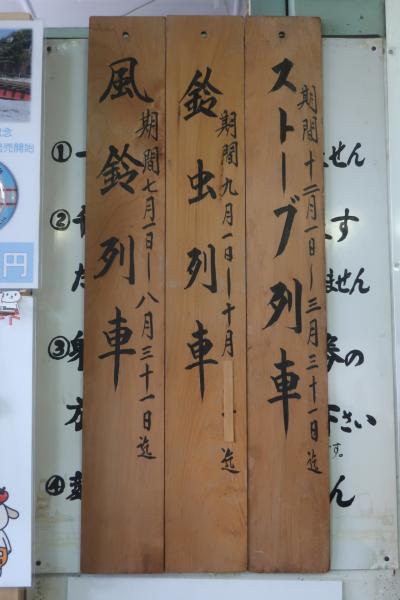 ストーブ列車
期間十二月一日〜三月三十一日迄
鈴虫列車
期間九月一日〜十月
迄
風鈴列車
期間七月一日〜八月三十一日迄
①
②
③
④
ません
ません
さい
円
売開始